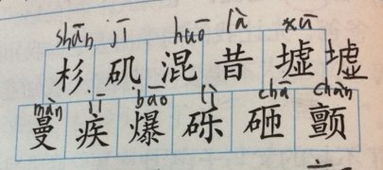 shān jī huō là xū
杉矶混昔墟墟
màn jí bāo lì chā chàn
曼疾爆砾砸颤